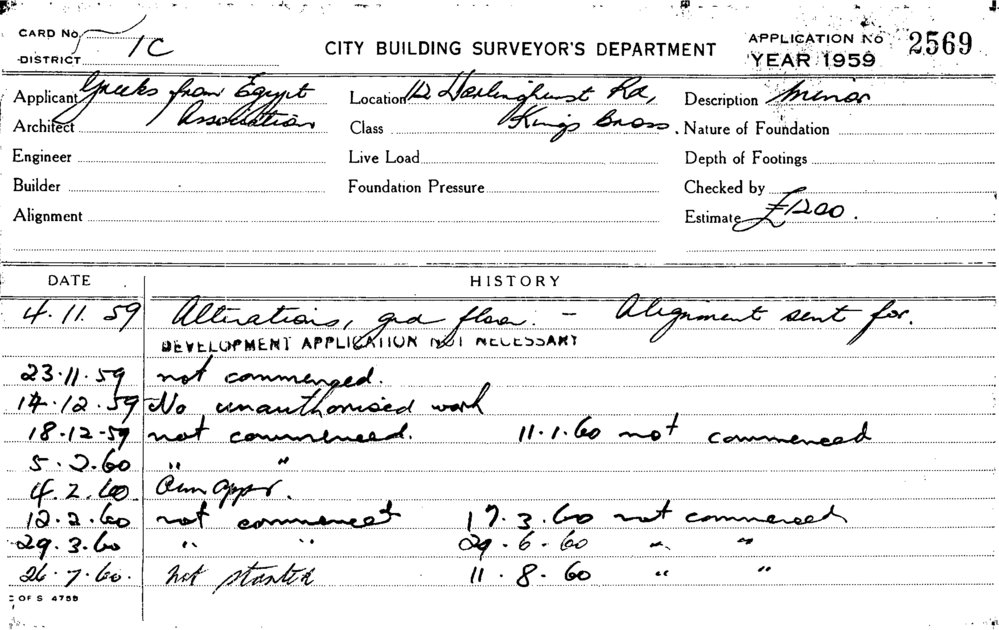 CARD No. CITY BUILDING SURVEYOR'S DEPARTMENT APPLICATION No 2569
DISTRICT 1C YEAR 1959
Applicant Greeks from Egypt Location 12 Darlinghurst Rd, Description Minor
Architect Association Class Kings Cross. Nature of Foundation
Engineer Live Load Depth of Footings
Builder Foundation Pressure Checked by
Alignment Estimate £1200.
DATE HISTORY
4.11.59 Alterations, grd floor. - Alignment sent for.
DEVELOPMENT APPLICATION NOT NECESSARY
23.11.59 not commenced.
14.12.59 No unauthorised work
18-12-59 not commenced. 11.1.60 not commenced
5.2.60 " "
4.2.60 appr.
12.2.60 not commenced 17.3.60 not commenced
29.3.60 " " 29-6-60 " "
26.7.60. Not started 11.8.60 " "
C OF S 4788